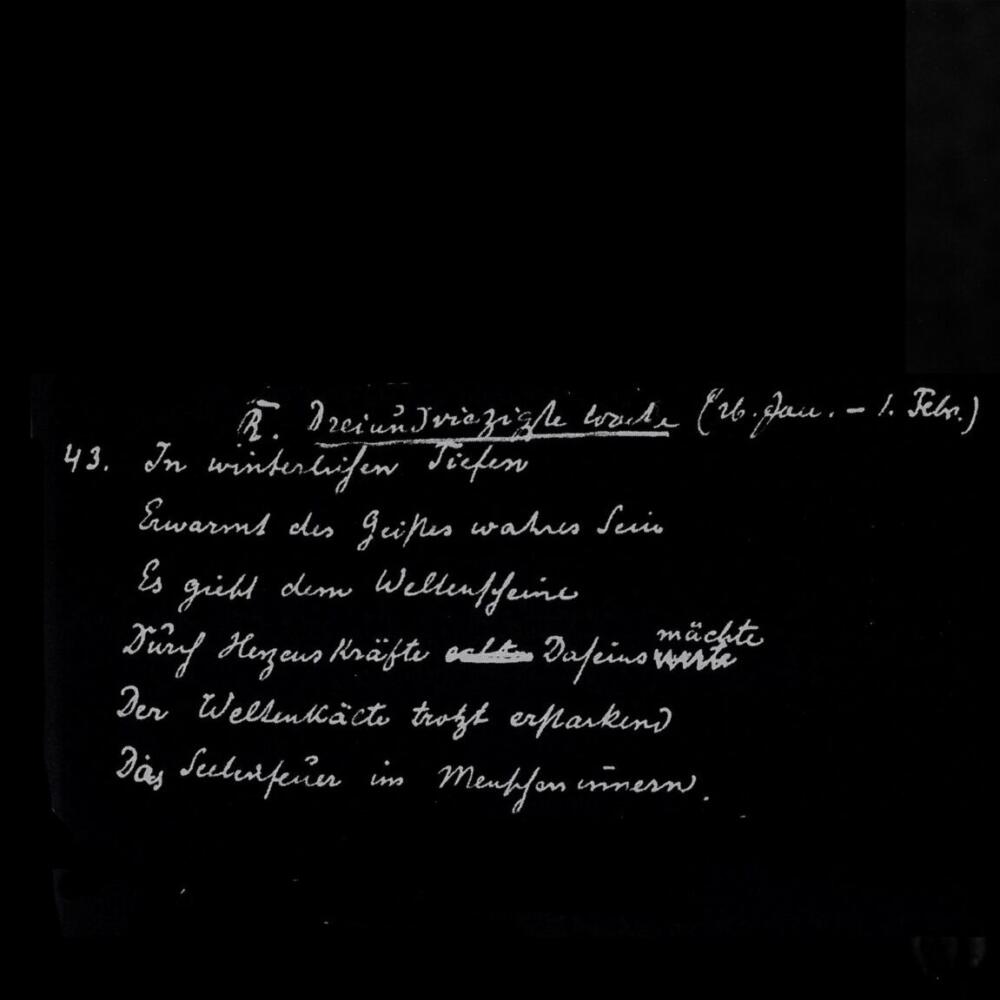 R̄. Dreiundvierzigste Woche (26. Jan. – 1. Febr.)
43. In winterlichen Tiefen
Erwarmt des Geistes wahres Sein
Es giebt dem Weltenscheine
mächte
Durch Herzenskräfte echte Daseins werte
Der Weltenkälte trotzt erstarkend
Das Seelenfeuer im Menscheninnern.